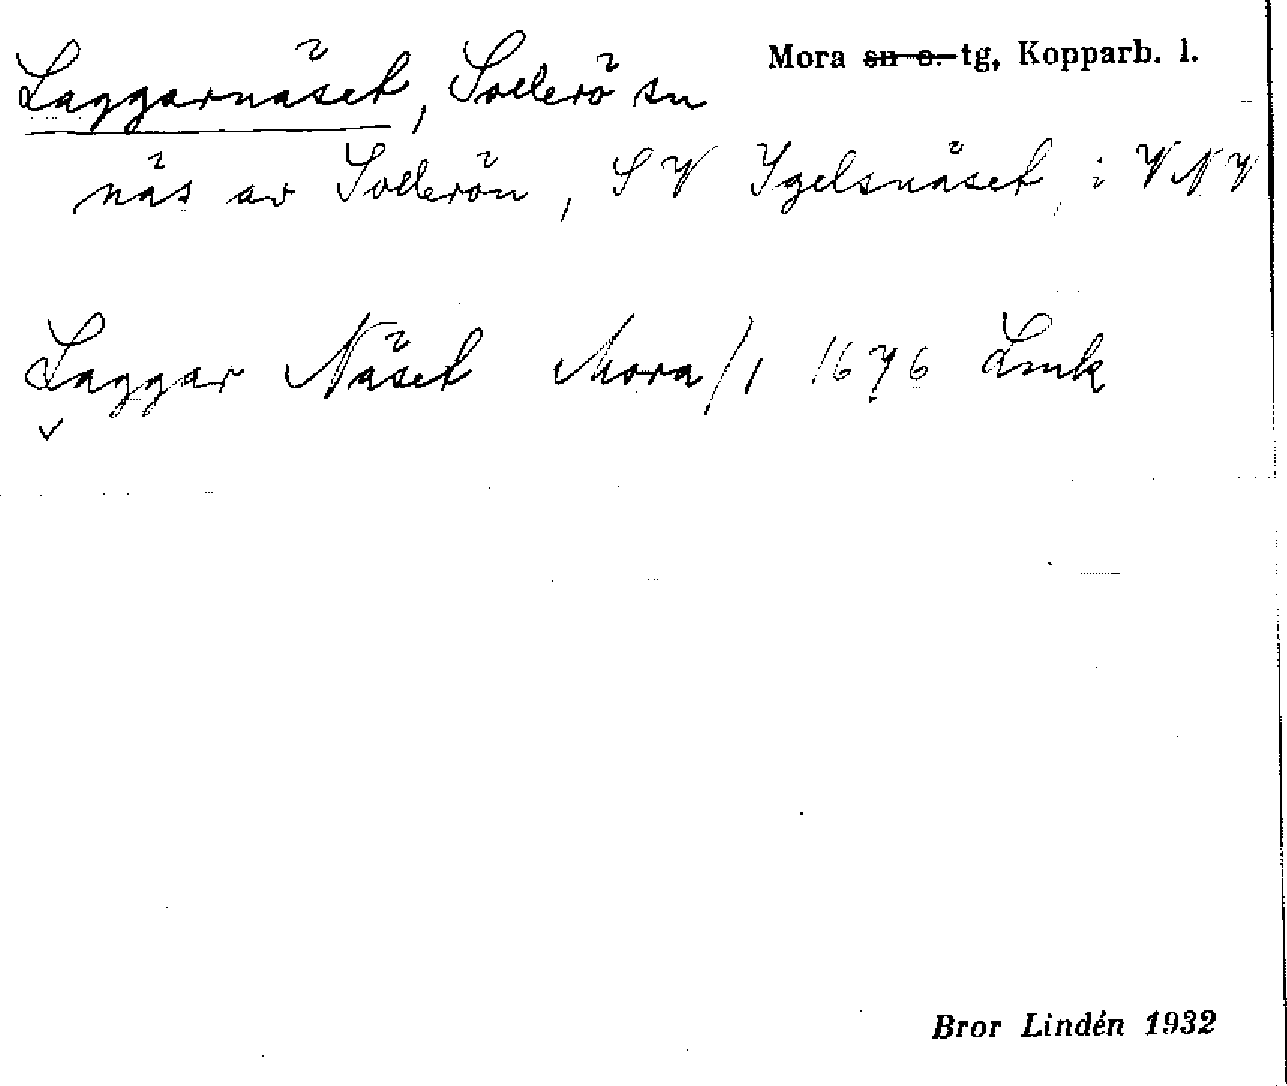 Laggarnäset, Sollerö sn
Mora sn o. tg, Kopparb. l.
näs av Sollerön, SV Igelsnäset, i VNV
Laggar Näset Mora/1 1676 Lmk
Bror Lindén 1932